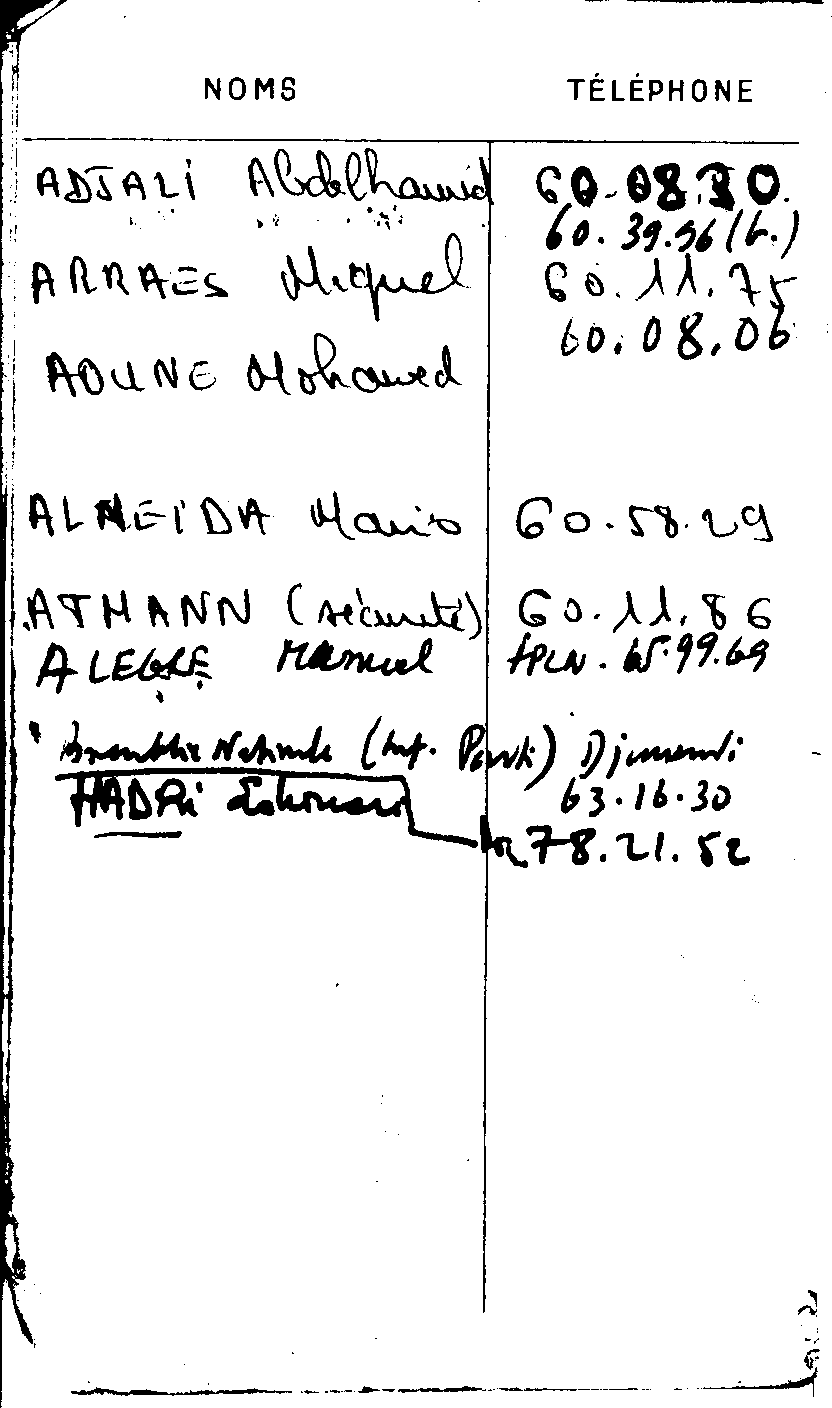 NOMS TÉLÉPHONE
ADJALI Abdelhamid 60.08.30.
60.39.56 (b.)
ARRAES Miquel 60.11.75
60.08.06
AOUNE Mohamed
ALMEIDA Mario 60.58.29
ATMANN (sécurité) 60.11.86
ALEGRE Manuel FPLN. 65.99.69
Assemblée Nationale (Inf.
63.16.30
HADRI
78.21.52